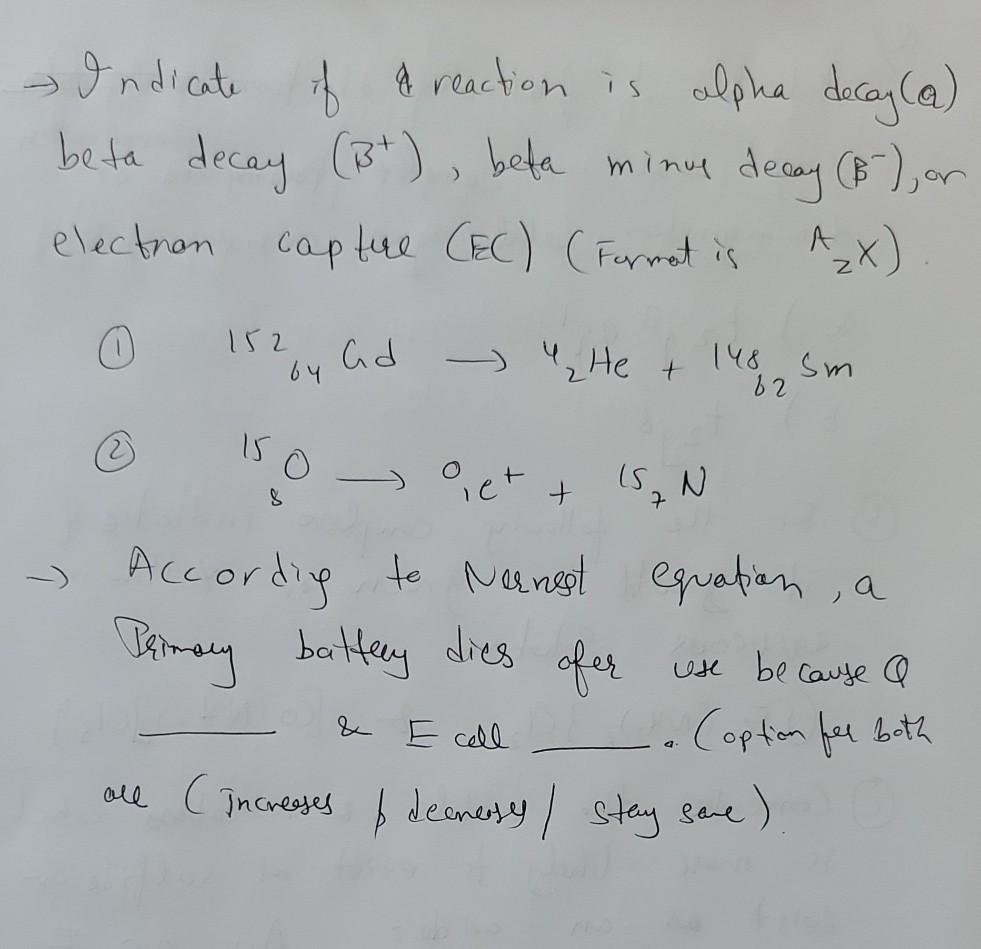 → Indicate if a reaction is alpha decay (α)
beta decay (β⁺), beta minus decay (β⁻), or
electron capture (EC) (Format is ᴬ_Z X).
① ¹⁵²₆₄Gd → ⁴₂He + ¹⁴⁸₆₂Sm
② ¹⁵₈O → ⁰₁e⁺ + ¹⁵₇N
→ According to Nernst equation, a
Primary battery dies after use because Q
______ & E cell ______. (option for both
are (increases / decreases / stay same).